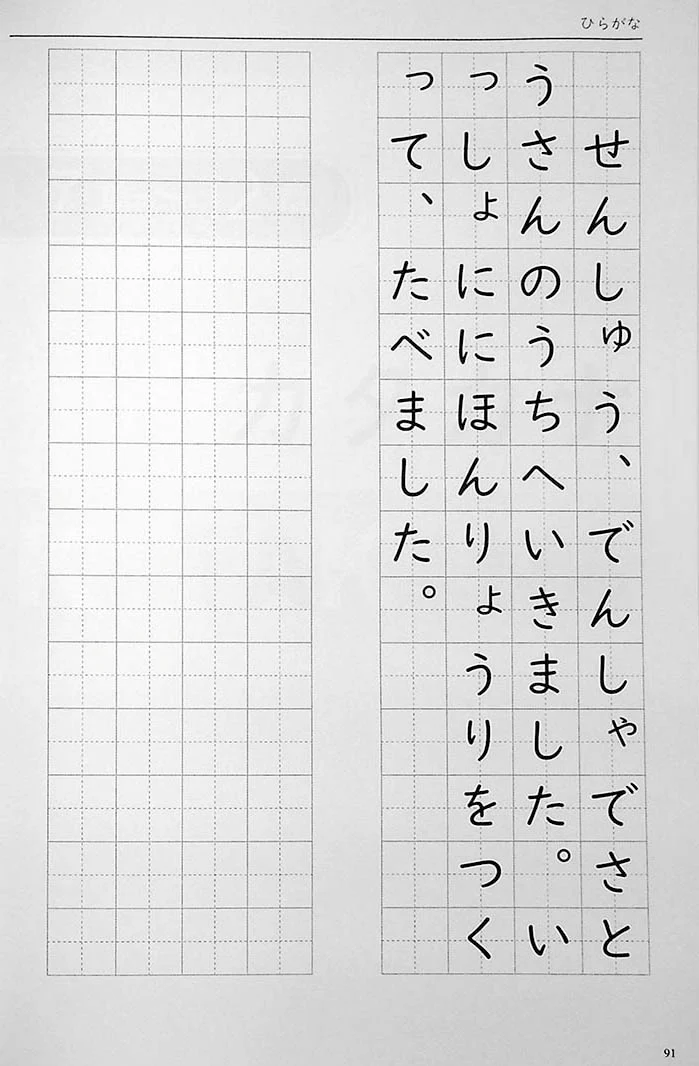 ひらがな
せんしゅう、でんしゃでさと
うさんのうちへいきました。い
っしょににほんりょうりをつく
って、たべました。
91